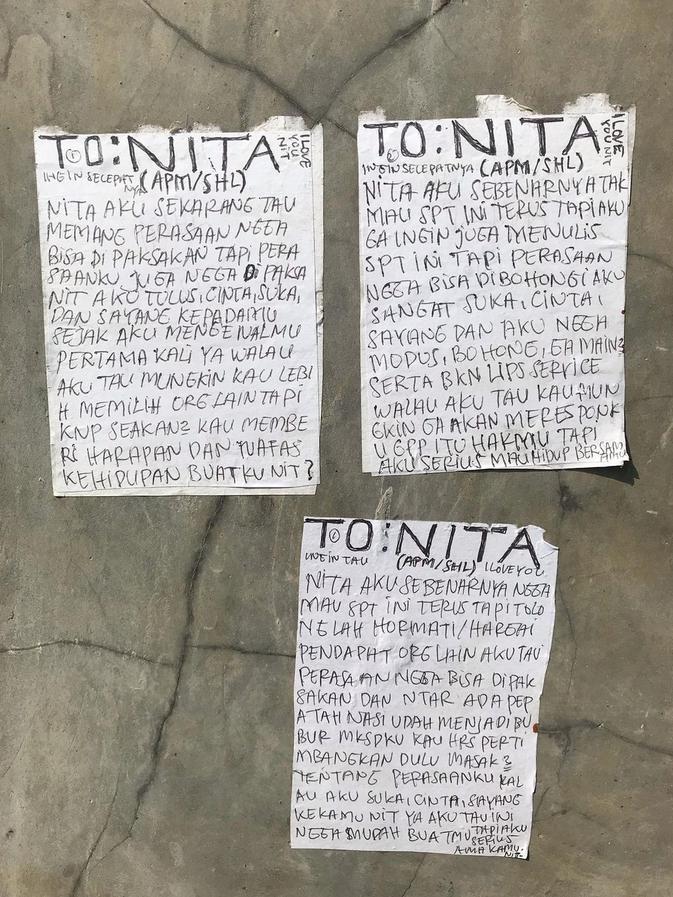 TO:NITA
①
I LOVE
YOU
NIT
INGIN SELEPAT
NYA (APM/SHL)
NITA AKU SEKARANG TAU
MEMANG PERASAAN NGGA
BISA DI PAKSAKAN TAPI PERA
SAANKU JUGA NGGA DI PAKSA
NIT AKU TULUS, CINTA, SUKA,
DAN SAYANG KEPADAMU
SEJAK AKU MENGENALMU
PERTAMA KALI YA WALAU
AKU TAU MUNGKIN KAU LEBI
H MEMILIH ORG LAIN TAPI
KNP SEAKAN2 KAU MEMBE
RI HARAPAN DAN NAFAS
KEHIDUPAN BUATKU NIT?
TO:NITA
②
I LOVE
YOU NIT
INGIN SELEPATNYA (APM/SHL)
NITA AKU SEBENARNYA TAK
MAU SPT INI TERUS TAPI AKU
GA INGIN JUGA MENULIS
SPT INI TAPI PERASAAN
NGGA BISA DIBOHONGI AKU
SANGAT SUKA, CINTA,
SAYANG DAN AKU NGGA
MODUS, BOHONG, GA MAIN2
SERTA BKN LIPS SERVICE
WALAU AKU TAU KAU MUN
GKIN GA AKAN MERESPONK
U GPP ITU HAKMU TAPI
AKU SERIUS MAU HIDUP BERSAM
AMU
TO:NITA
INGIN TAU (APM/SHL) I LOVE YOU
NITA AKU SEBENARNYA NGGA
MAU SPT INI TERUS TAPI TOLO
NG LAH HORMATI/HARGAI
PENDAPAT ORG LAIN AKU TAU
PERASAAN NGGA BISA DIPAK
SAKAN DAN NTAR ADA PEP
ATAH NASI UDAH MENJADI BU
BUR MKSDKU KAU HRS PERTI
MBANGKAN DULU MASAK2
TENTANG PERASAANKU KAL
AU AKU SUKA, CINTA, SAYANG
KEKAMU NIT YA AKU TAU INI
NGGA MUDAH BUATMU TAPI AKU
SERIUS
AMA KAMU
NIT-